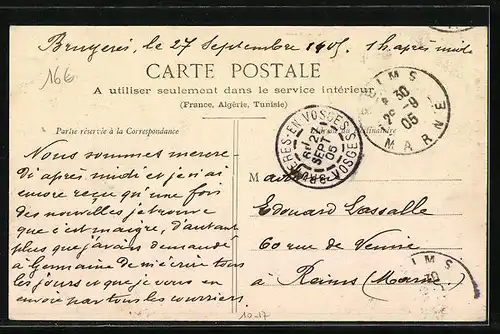 Bruyères, le 27 Septembre 1905. 1 h après midi
166
CARTE POSTALE
A utiliser seulement dans le service intérieur
(France, Algérie, Tunisie)
Partie réservée à la Correspondance
du Destinataire
REIMS
4 30
28-9
05
MARNE
BRUYERES-EN-VOSGES
27
SEPT
05
VOSGES
Nous sommes mercre-
di après midi et je n'ai
encore reçu qu'une fois
des nouvelles, je trouve
que c'est maigre, d'autant
plus que j'avais demandé
à Germaine de m'écrire tous
les jours et que je vous en
envoie par tous les courriers.
M
Edouard Lassalle
60 rue de Venise
à Reims (Marne)
IMS
30
10-17